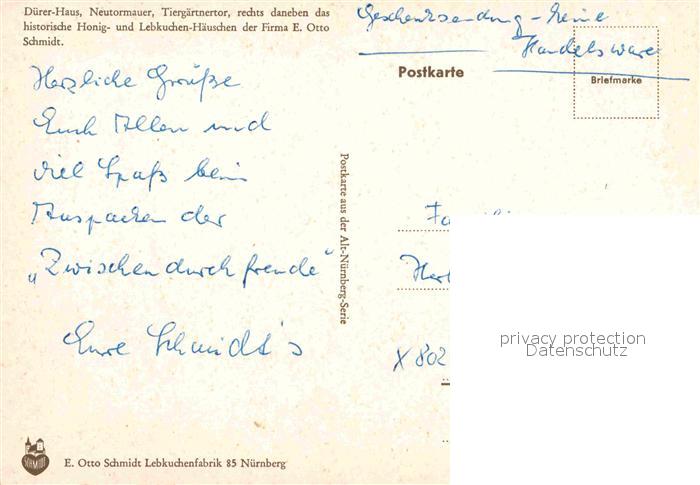 Dürer-Haus, Neutormauer, Tiergärtnertor, rechts daneben das
historische Honig- und Lebkuchen-Häuschen der Firma E. Otto
Schmidt.
Geschenksendung - Keine
Handelsware
Postkarte
Briefmarke
Herzliche Grüße
Euch Allen und
viel Spaß beim
Auspacken der
„Zwischendurchfreude"
Eure Schmidt's
Postkarte aus der Alt-Nürnberg-Serie
X 802
privacy protection
Datenschutz
SCHMIDT
E. Otto Schmidt Lebkuchenfabrik 85 Nürnberg